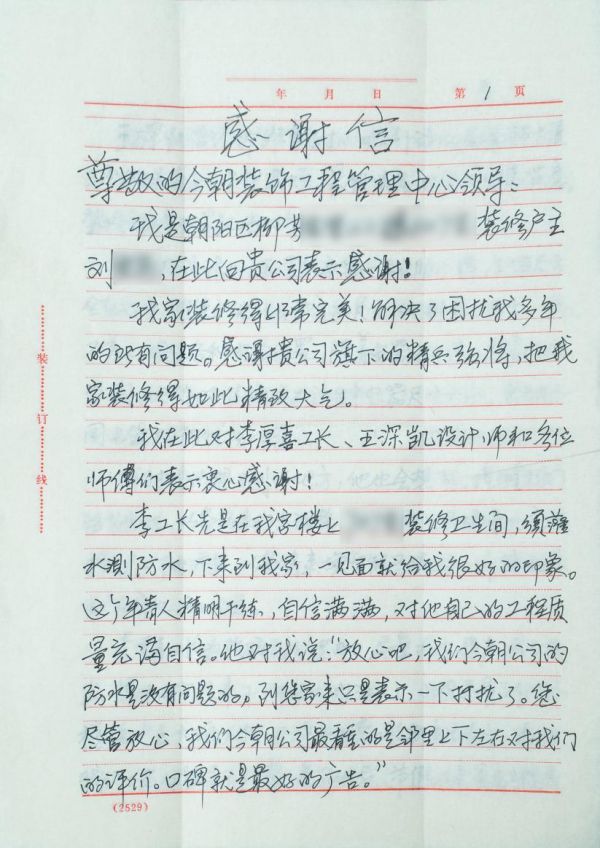 年 月 日 第 1 页
感谢信
尊敬的今朝装饰工程管理中心领导：
我是朝阳区柳芳 装修户主
刘 ，在此向贵公司表示感谢！
我家装修得非常完美！解决了困扰我多年
的所有问题。感谢贵公司旗下的精兵强将，把我
家装修得如此精致大气。
我在此对李厚喜工长、王深凯设计师和各位
师傅们表示衷心感谢！
李工长先是在我家楼上 装修卫生间，须灌
水测防水，下来到我家，一见面就给我很好的印象。
这个年青人精明干练，自信满满，对他自己的工程质
量充满自信。他对我说：“放心吧，我们今朝公司的
防水是没有问题的，到您家来只是表示一下打扰了。您
尽管放心，我们今朝公司最看重的是邻里上下左右对我们
的评价。口碑就是最好的广告。”
装订线
(2529)